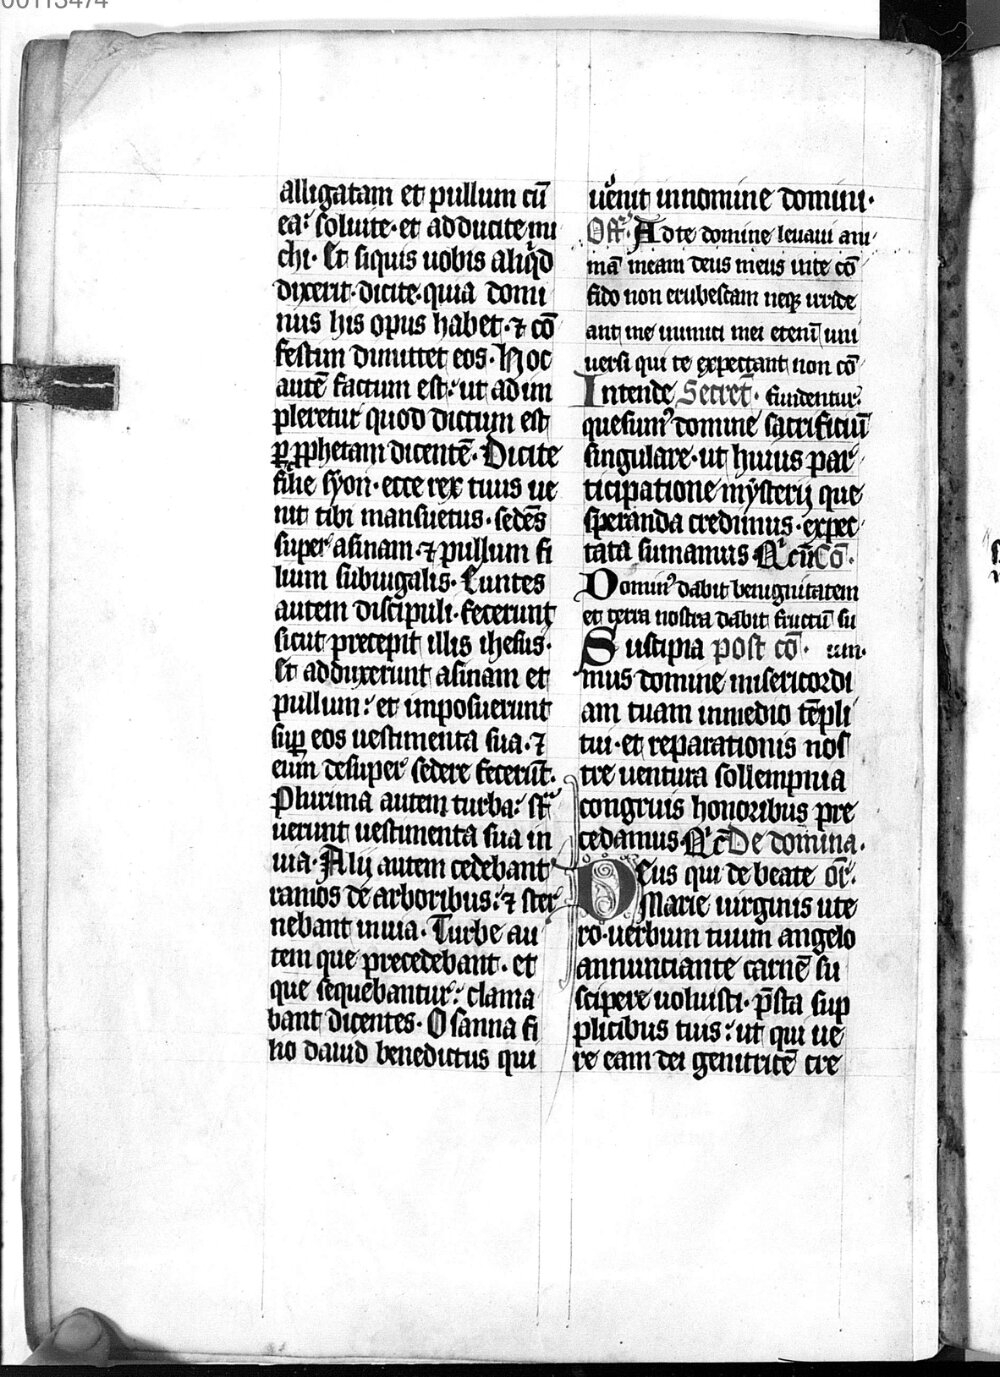 00113474
alligatam et pullum cū
ea: soluite· et adducite mi
chi· Et siquis uobis aliqͥd
dixerit· dicite· quia domi
nus his opus habet· ⁊ cō
festim dimittet eos· Hoc
autē factum est: ut adim
pleretur quod dictum est
ꝑ ꝓphetam dicentē· Dicite
filie syon· ecce rex tuus ue
nit tibi mansuetus· sedēs
super asinam· ⁊ pullum fi
lium subiugalis· Euntes
autem discipuli· fecerunt
sicut precepit illis ihesus·
Et adduxerunt asinam et
pullum: et imposuerunt
suꝑ eos uestimenta sua· ⁊
eum desuper sedere fecerūt·
Plurima autem turba: st͛
uerunt uestimenta sua in
uia· Alij autem cedebant
ramos de arboribus: ⁊ ster
nebant inuia· Turbe au
tem que precedebant· et
que sequebantur: clama
bant dicentes· Osanna fi
lio dauid benedictus qui
uēnit innomine domini·
Off· Ad te domine leuaui ani
mā meam deus meus inte cō
fido non erubescam neqꝫ irride
ant me inimici mei etenī uni
uersi qui te expectant non cō
Intende Secret̄· fundentur·
quesumꝰ domine sacrificiū
singulare· ut huius par
ticipatione mysterij que
speranda credimus· expec
tata sumamus Q͛ cū Cō·
Dominꝰ dabit benignitatem
et terra nostra dabit fructū su
Suscipia post cō· um·
mus domine misericordi
am tuam inmedio tēpli
tui· et reparationis nos
tre uentura sollempnia
congruis honoribus pre
cedamus Q͛ c̄ De domina·
Deus qui de beate or̄·
Marie uirginis ute
ro· uerbum tuum angelo
annunciante carnē su
scipere uoluisti· p̄sta sup
plicibus tuis: ut qui ue
re eam dei genitricē cre